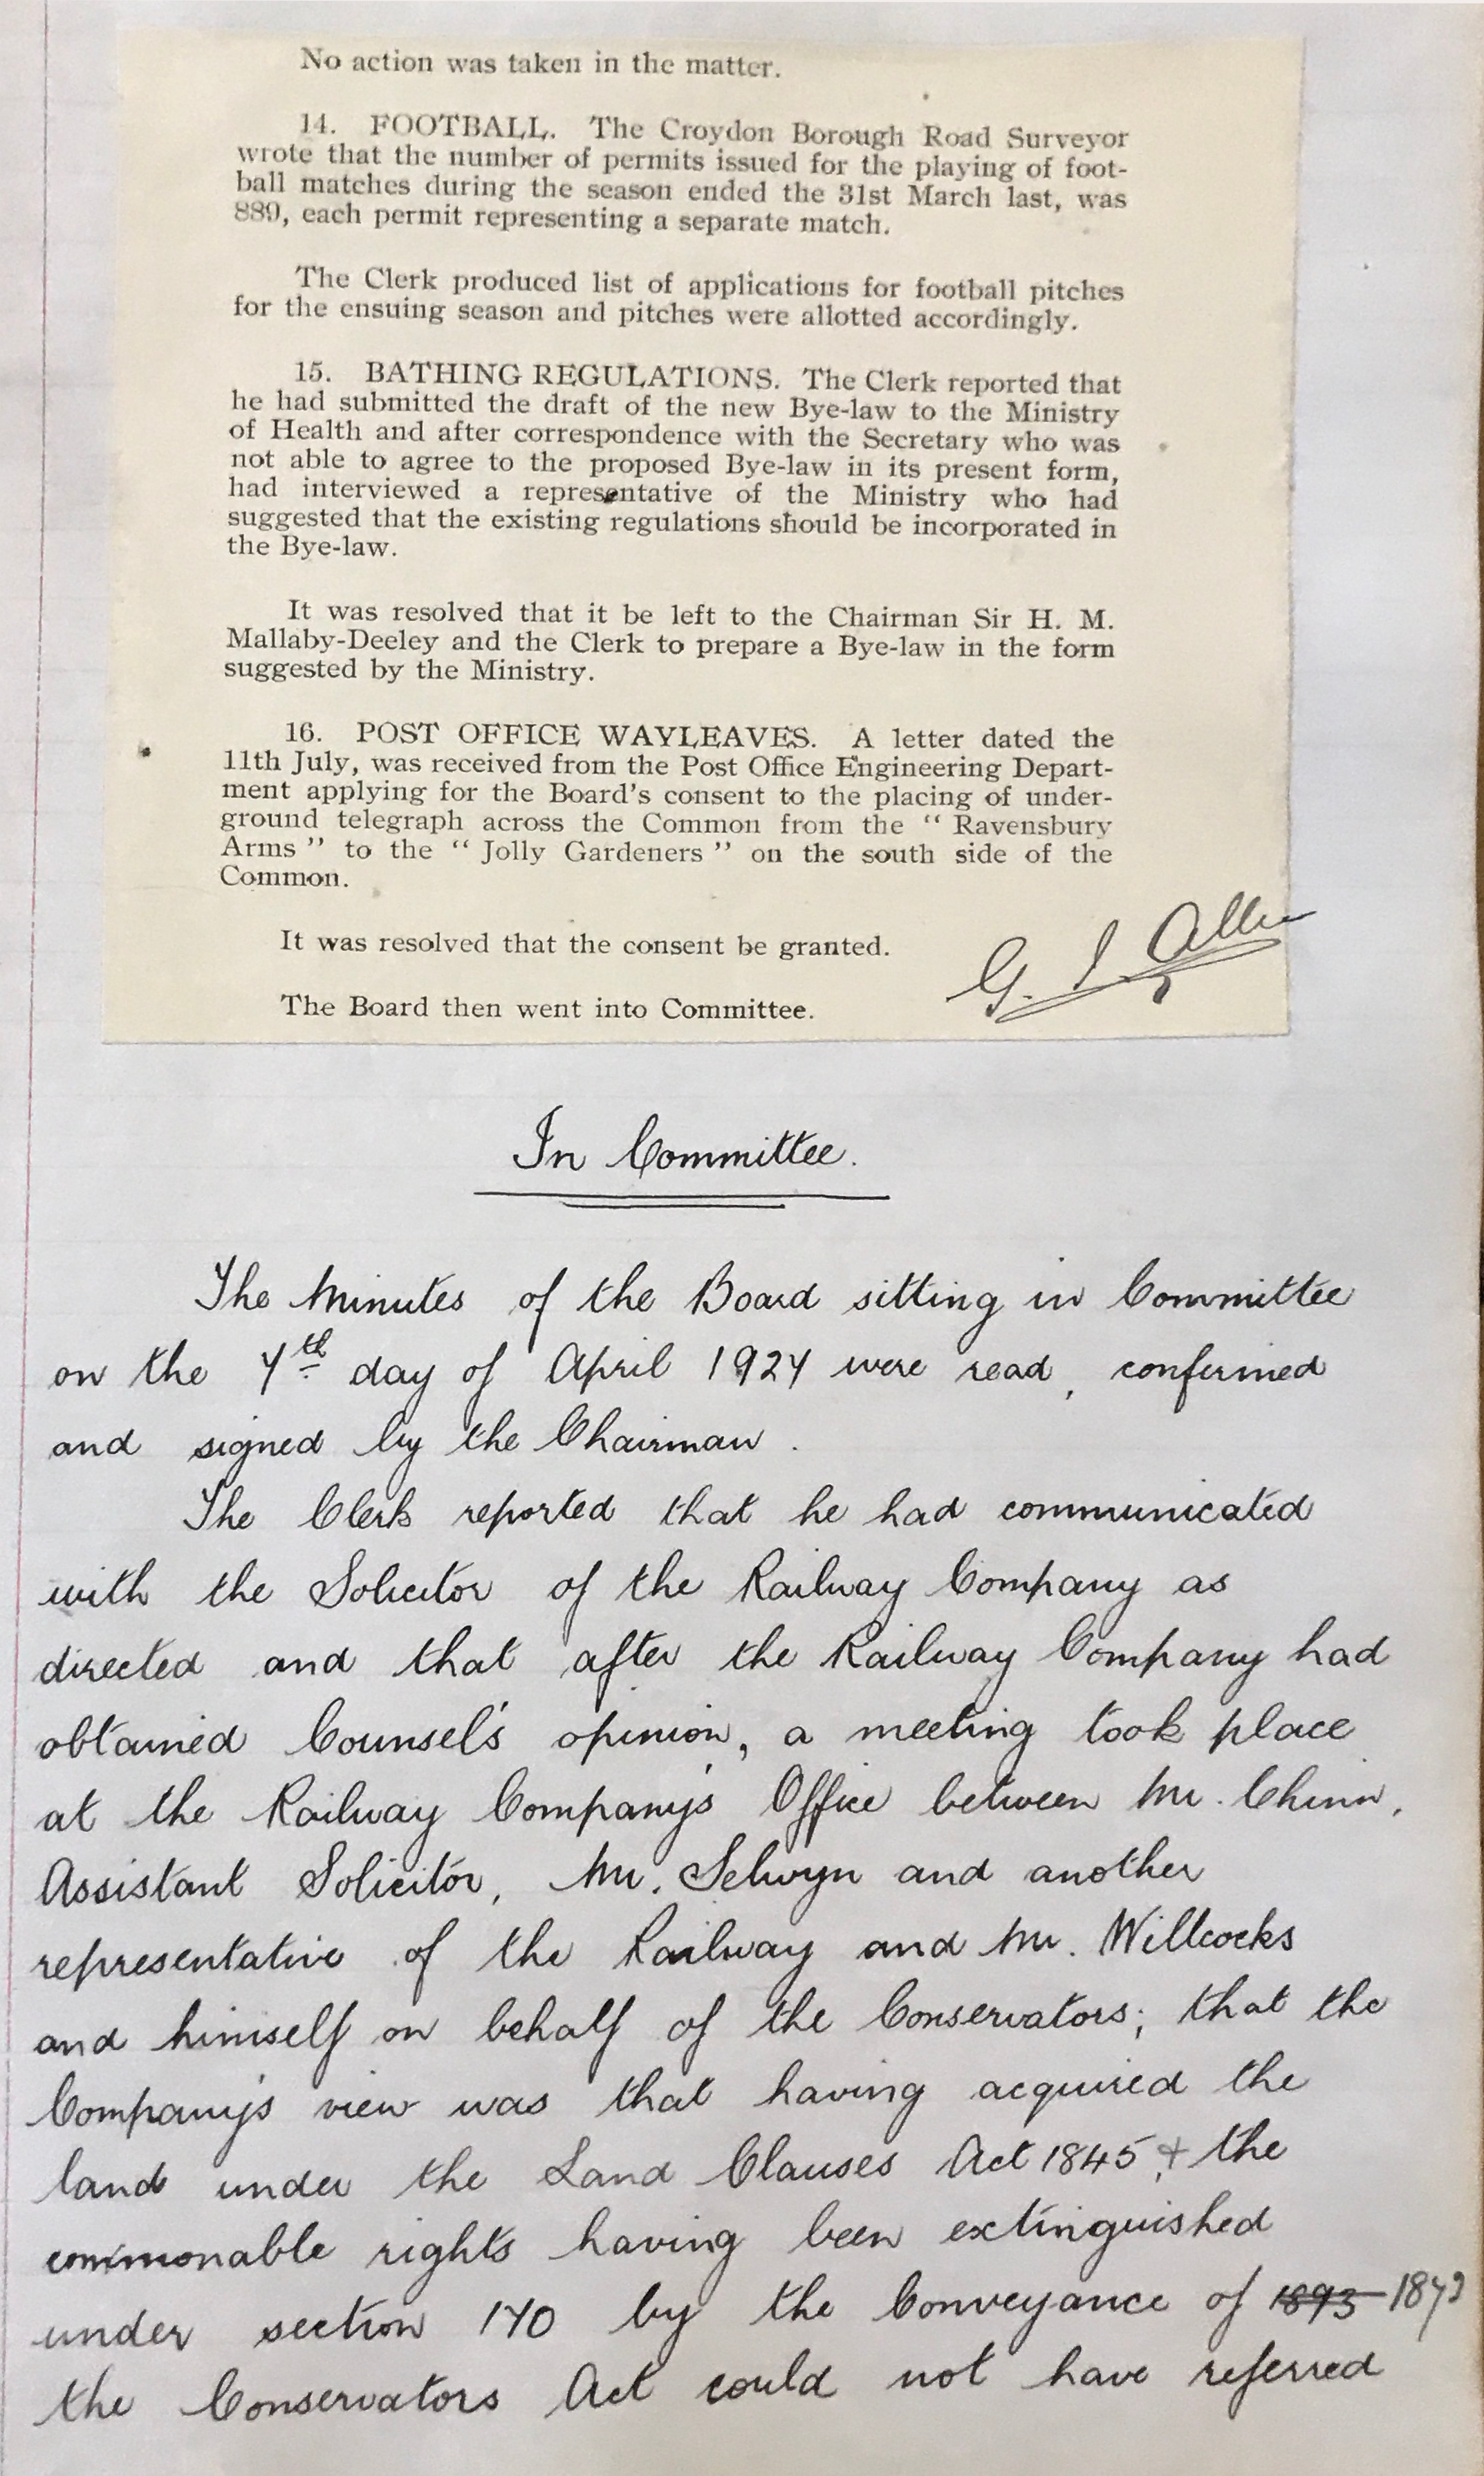 No action was taken in the matter.
14. FOOTBALL. The Croydon Borough Road Surveyor
wrote that the number of permits issued for the playing of foot-
ball matches during the season ended the 31st March last, was
889, each permit representing a separate match.
The Clerk produced list of applications for football pitches
for the ensuing season and pitches were allotted accordingly.
15. BATHING REGULATIONS. The Clerk reported that
he had submitted the draft of the new Bye-law to the Ministry
of Health and after correspondence with the Secretary who was
not able to agree to the proposed Bye-law in its present form,
had interviewed a representative of the Ministry who had
suggested that the existing regulations should be incorporated in
the Bye-law.
It was resolved that it be left to the Chairman Sir H. M.
Mallaby-Deeley and the Clerk to prepare a Bye-law in the form
suggested by the Ministry.
16. POST OFFICE WAYLEAVES. A letter dated the
11th July, was received from the Post Office Engineering Depart-
ment applying for the Board's consent to the placing of under-
ground telegraph across the Common from the “ Ravensbury
Arms ” to the “ Jolly Gardeners ” on the south side of the
Common.
It was resolved that the consent be granted.
The Board then went into Committee.
In Committee.
The Minutes of the Board sitting in Committee
on the 7th day of April 1927 were read, confirmed
and signed by the Chairman.
The Clerk reported that he had communicated
with the Solicitor of the Railway Company as
directed and that after the Railway Company had
obtained Counsel's opinion, a meeting took place
at the Railway Company's Office between Mr. Chinn,
Assistant Solicitor, Mr. Selwyn and another
representative of the Railway and Mr. Willcocks
and himself on behalf of the Conservators; that the
Company's view was that having acquired the
land under the Land Clauses Act 1845, & the
commonable rights having been extinguished
under section 170 by the Conveyance of 1893 1873
the Conservators Act could not have referred